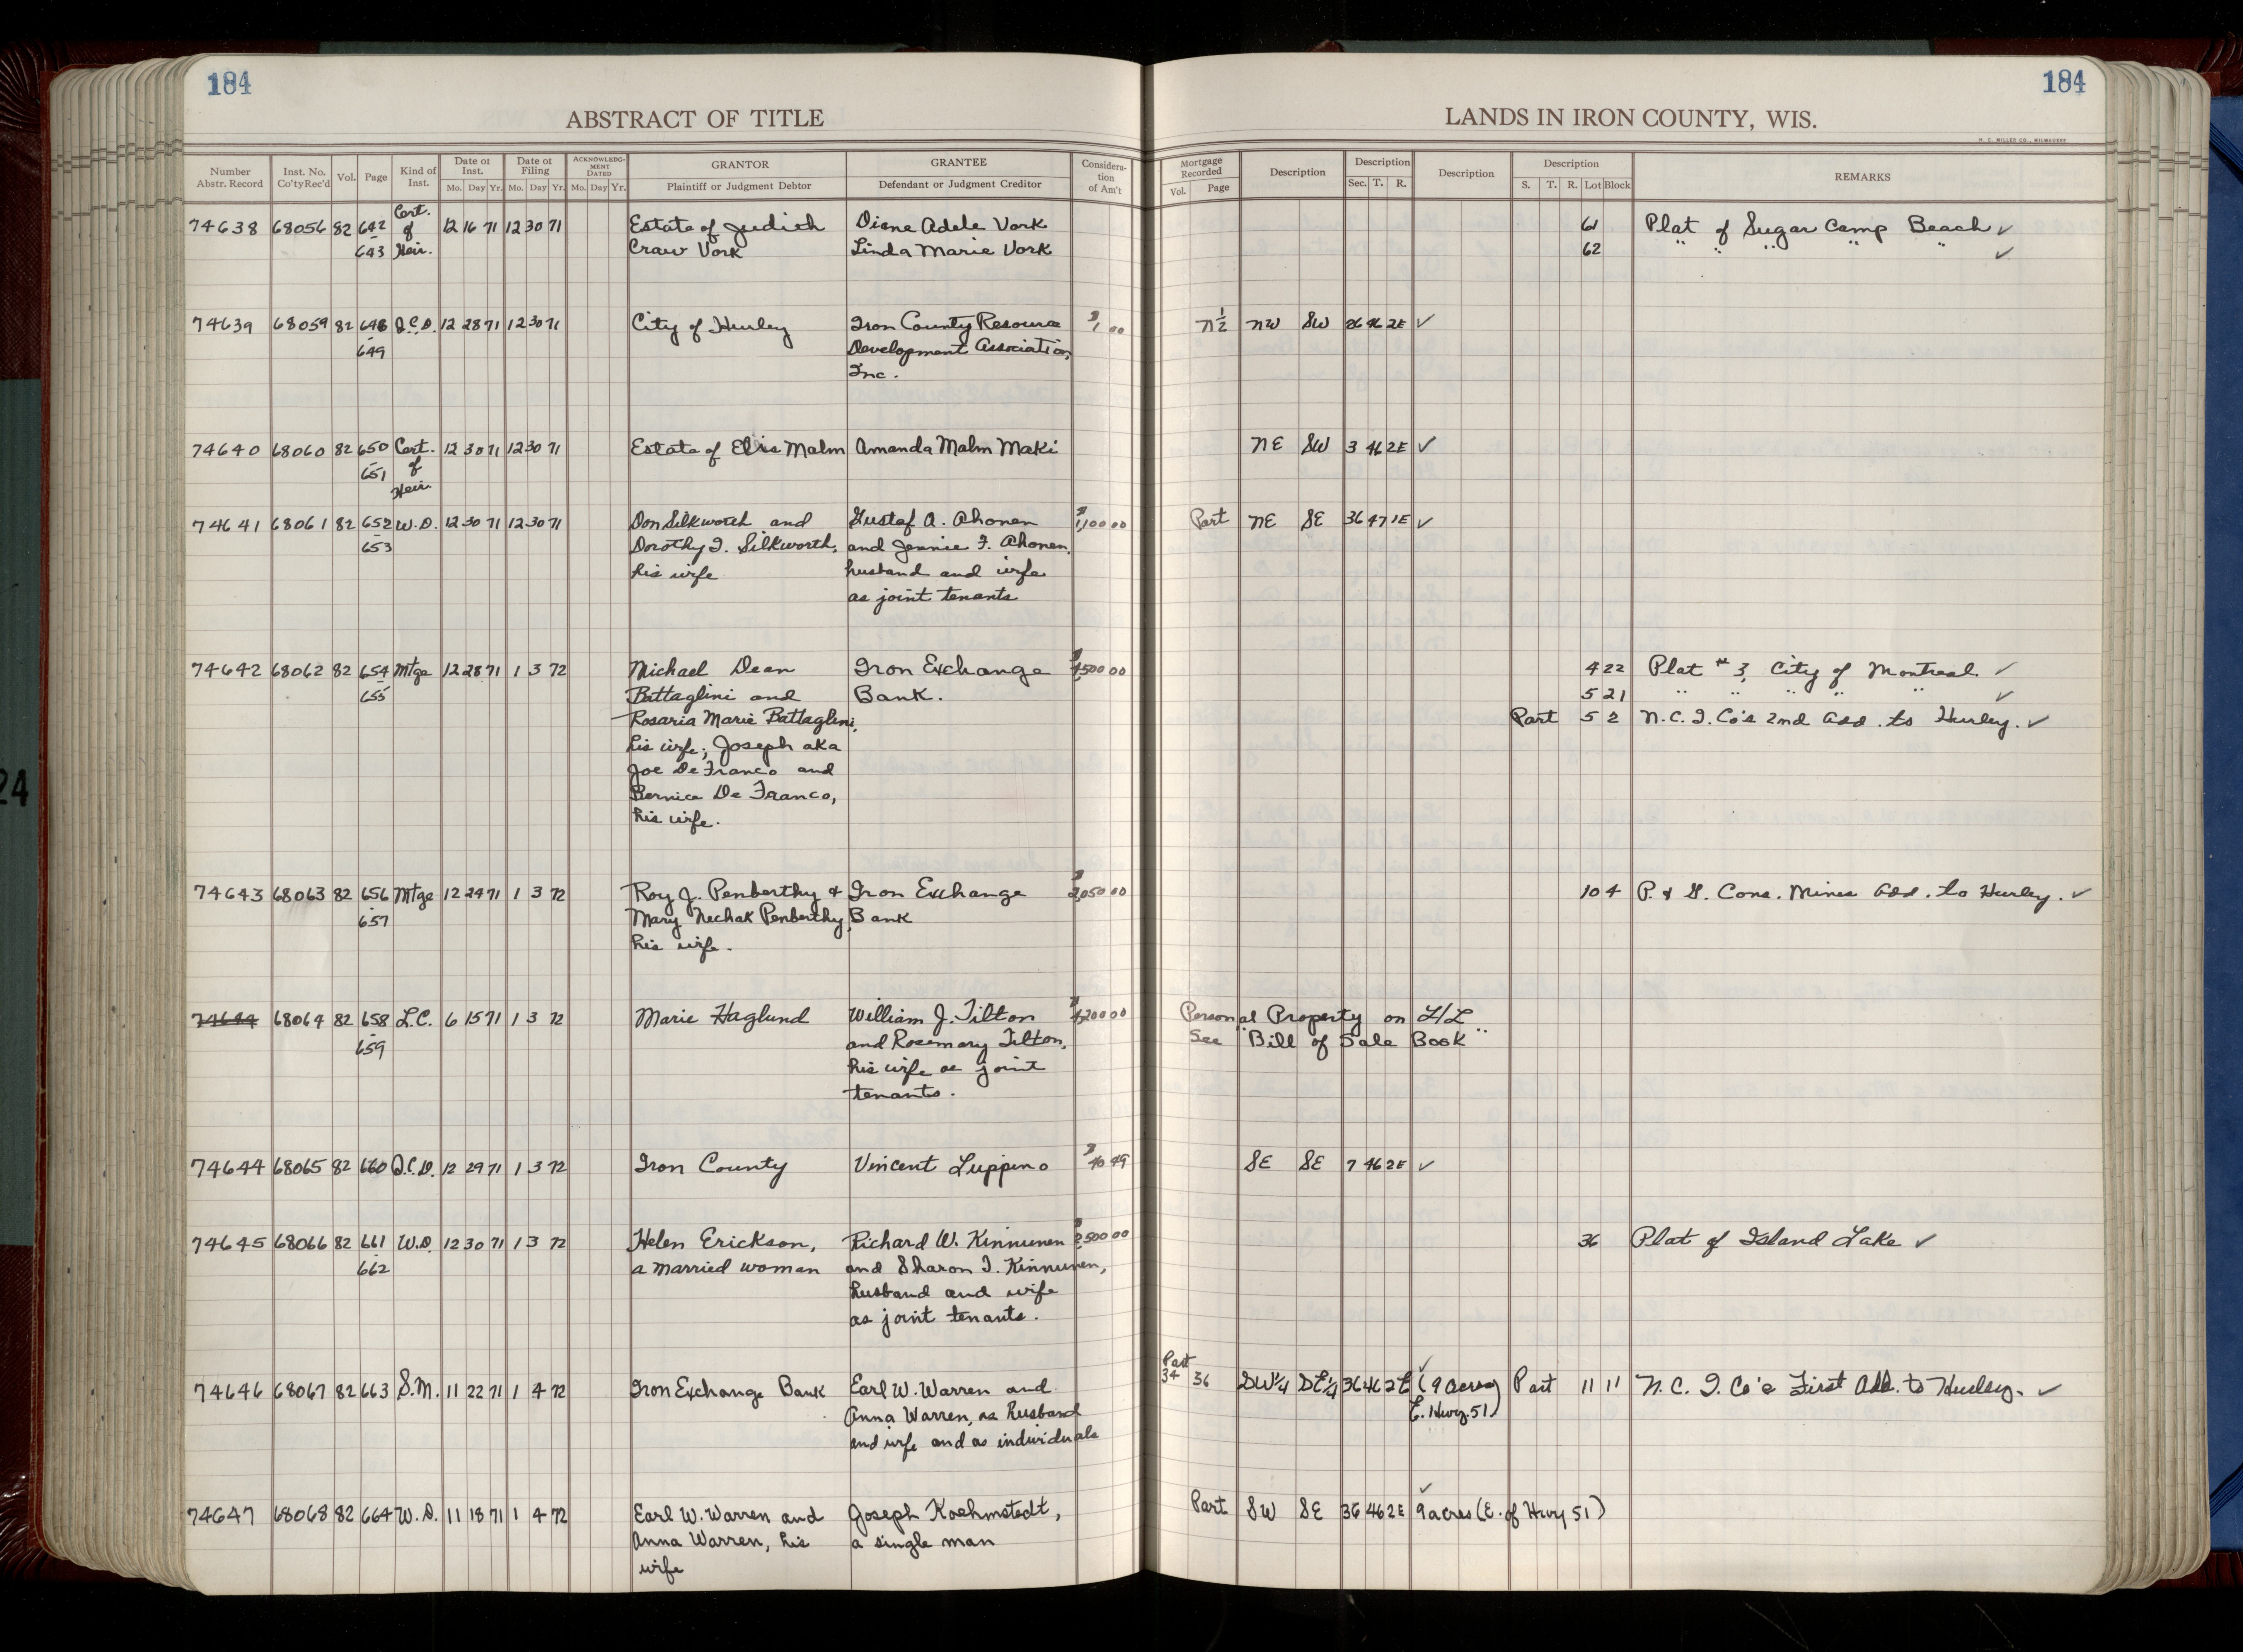 184
184
ABSTRACT OF TITLE
LANDS IN IRON COUNTY, WIS.
H. C. MILLER CO., MILWAUKEE
Number Abstr. Record
Inst. No. Co'tyRec'd
Vol.
Page
Kind of Inst.
Date of Inst.
Mo. Day Yr.
Date of Filing
Mo. Day Yr.
ACKNOWLEDGMENT DATED
Mo. Day Yr.
GRANTOR
Plaintiff or Judgment Debtor
GRANTEE
Defendant or Judgment Creditor
Consideration of Am't
Mortgage Recorded
Vol. Page
Description
Description
Sec. T. R.
Description
Description
S. T. R. Lot Block
REMARKS
74638 68056 82 642 Cert. 12 16 71 12 30 71 Estate of Judith Diane Adele Vork 61 Plat of Sugar Camp Beach ✓
643 of Heir. Craw Vork Linda Marie Vork 62 " " " " " ✓
74639 68059 82 648 Q.C.D. 12 28 71 12 30 71 City of Hurley Iron County Resource $1 00 N½ NW SW 26 46 2E ✓
649 Development Association,
Inc.
74640 68060 82 650 Cert. 12 30 71 12 30 71 Estate of Elvis Malm Amanda Malm Maki NE SW 3 46 2E ✓
651 of
Heir
74641 68061 82 652 W.D. 12 30 71 12 30 71 Don Silkworth and Gustaf A. Ahonen $1,100 00 Part NE SE 36 47 1E ✓
653 Dorothy I. Silkworth, and Jennie F. Ahonen,
his wife husband and wife
as joint tenants
74642 68062 82 654 Mtge 12 28 71 1 3 72 Michael Dean Iron Exchange 500 00 4 22 Plat #3, City of Montreal ✓
655 Battaglini and Bank. 5 21 " " " " " ✓
Rosaria Marie Battaglini, Part 5 2 N.C.I. Co's 2nd Add. to Hurley. ✓
his wife; Joseph aka
Joe De Franco and
Bernice De Franco,
his wife.
74643 68063 82 656 Mtge 12 29 71 1 3 72 Roy J. Penberthy & Iron Exchange $2,050 00 10 4 P. & G. Cons. Mines Add. to Hurley. ✓
657 Mary Nechak Penberthy, Bank
his wife.
74644 68064 82 658 L.C. 6 15 71 1 3 72 Marie Haglund William J. Tilton 200 00 Personal Property on L/L
659 and Rosemary Tilton, See "Bill of Sale Book"
his wife as joint
tenants.
74644 68065 82 660 Q.C.D. 12 29 71 1 3 72 Iron County Vincent Luppino $40 49 SE SE 7 46 2E ✓
74645 68066 82 661 W.D. 12 30 71 1 3 72 Helen Erickson, Richard W. Kinnunen $2,500 00 36 Plat of Island Lake ✓
662 a married woman and Sharon I. Kinnunen,
husband and wife
as joint tenants.
Part
74646 68067 82 663 S.M. 11 22 71 1 4 72 Iron Exchange Bank Earl W. Warren and 34 36 SW¼ SE¼ 36 46 2E (9 acres ✓ Part 11 11 N.C.I. Co's First Add. to Hurley. ✓
Anna Warren, as husband E. Hwy. 51)
and wife and as individuals
74647 68068 82 664 W.D. 11 18 71 1 4 72 Earl W. Warren and Joseph Koehmstedt, Part SW SE 36 46 2E 9 acres (E. of Hwy 51) ✓
Anna Warren, his a single man
wife
24